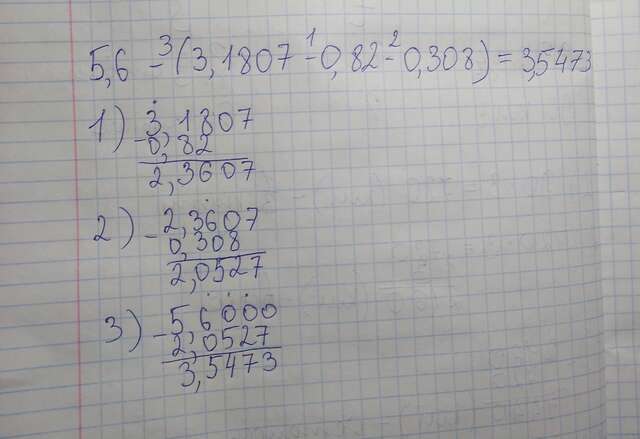 5,6 -³ (3,1807 -¹ 0,82 -² 0,308) = 3,5473
1) 3,1807
- 0,82
2,3607
2) - 2,3607
0,308
2,0527
3) - 5,6000
2,0527
3,5473